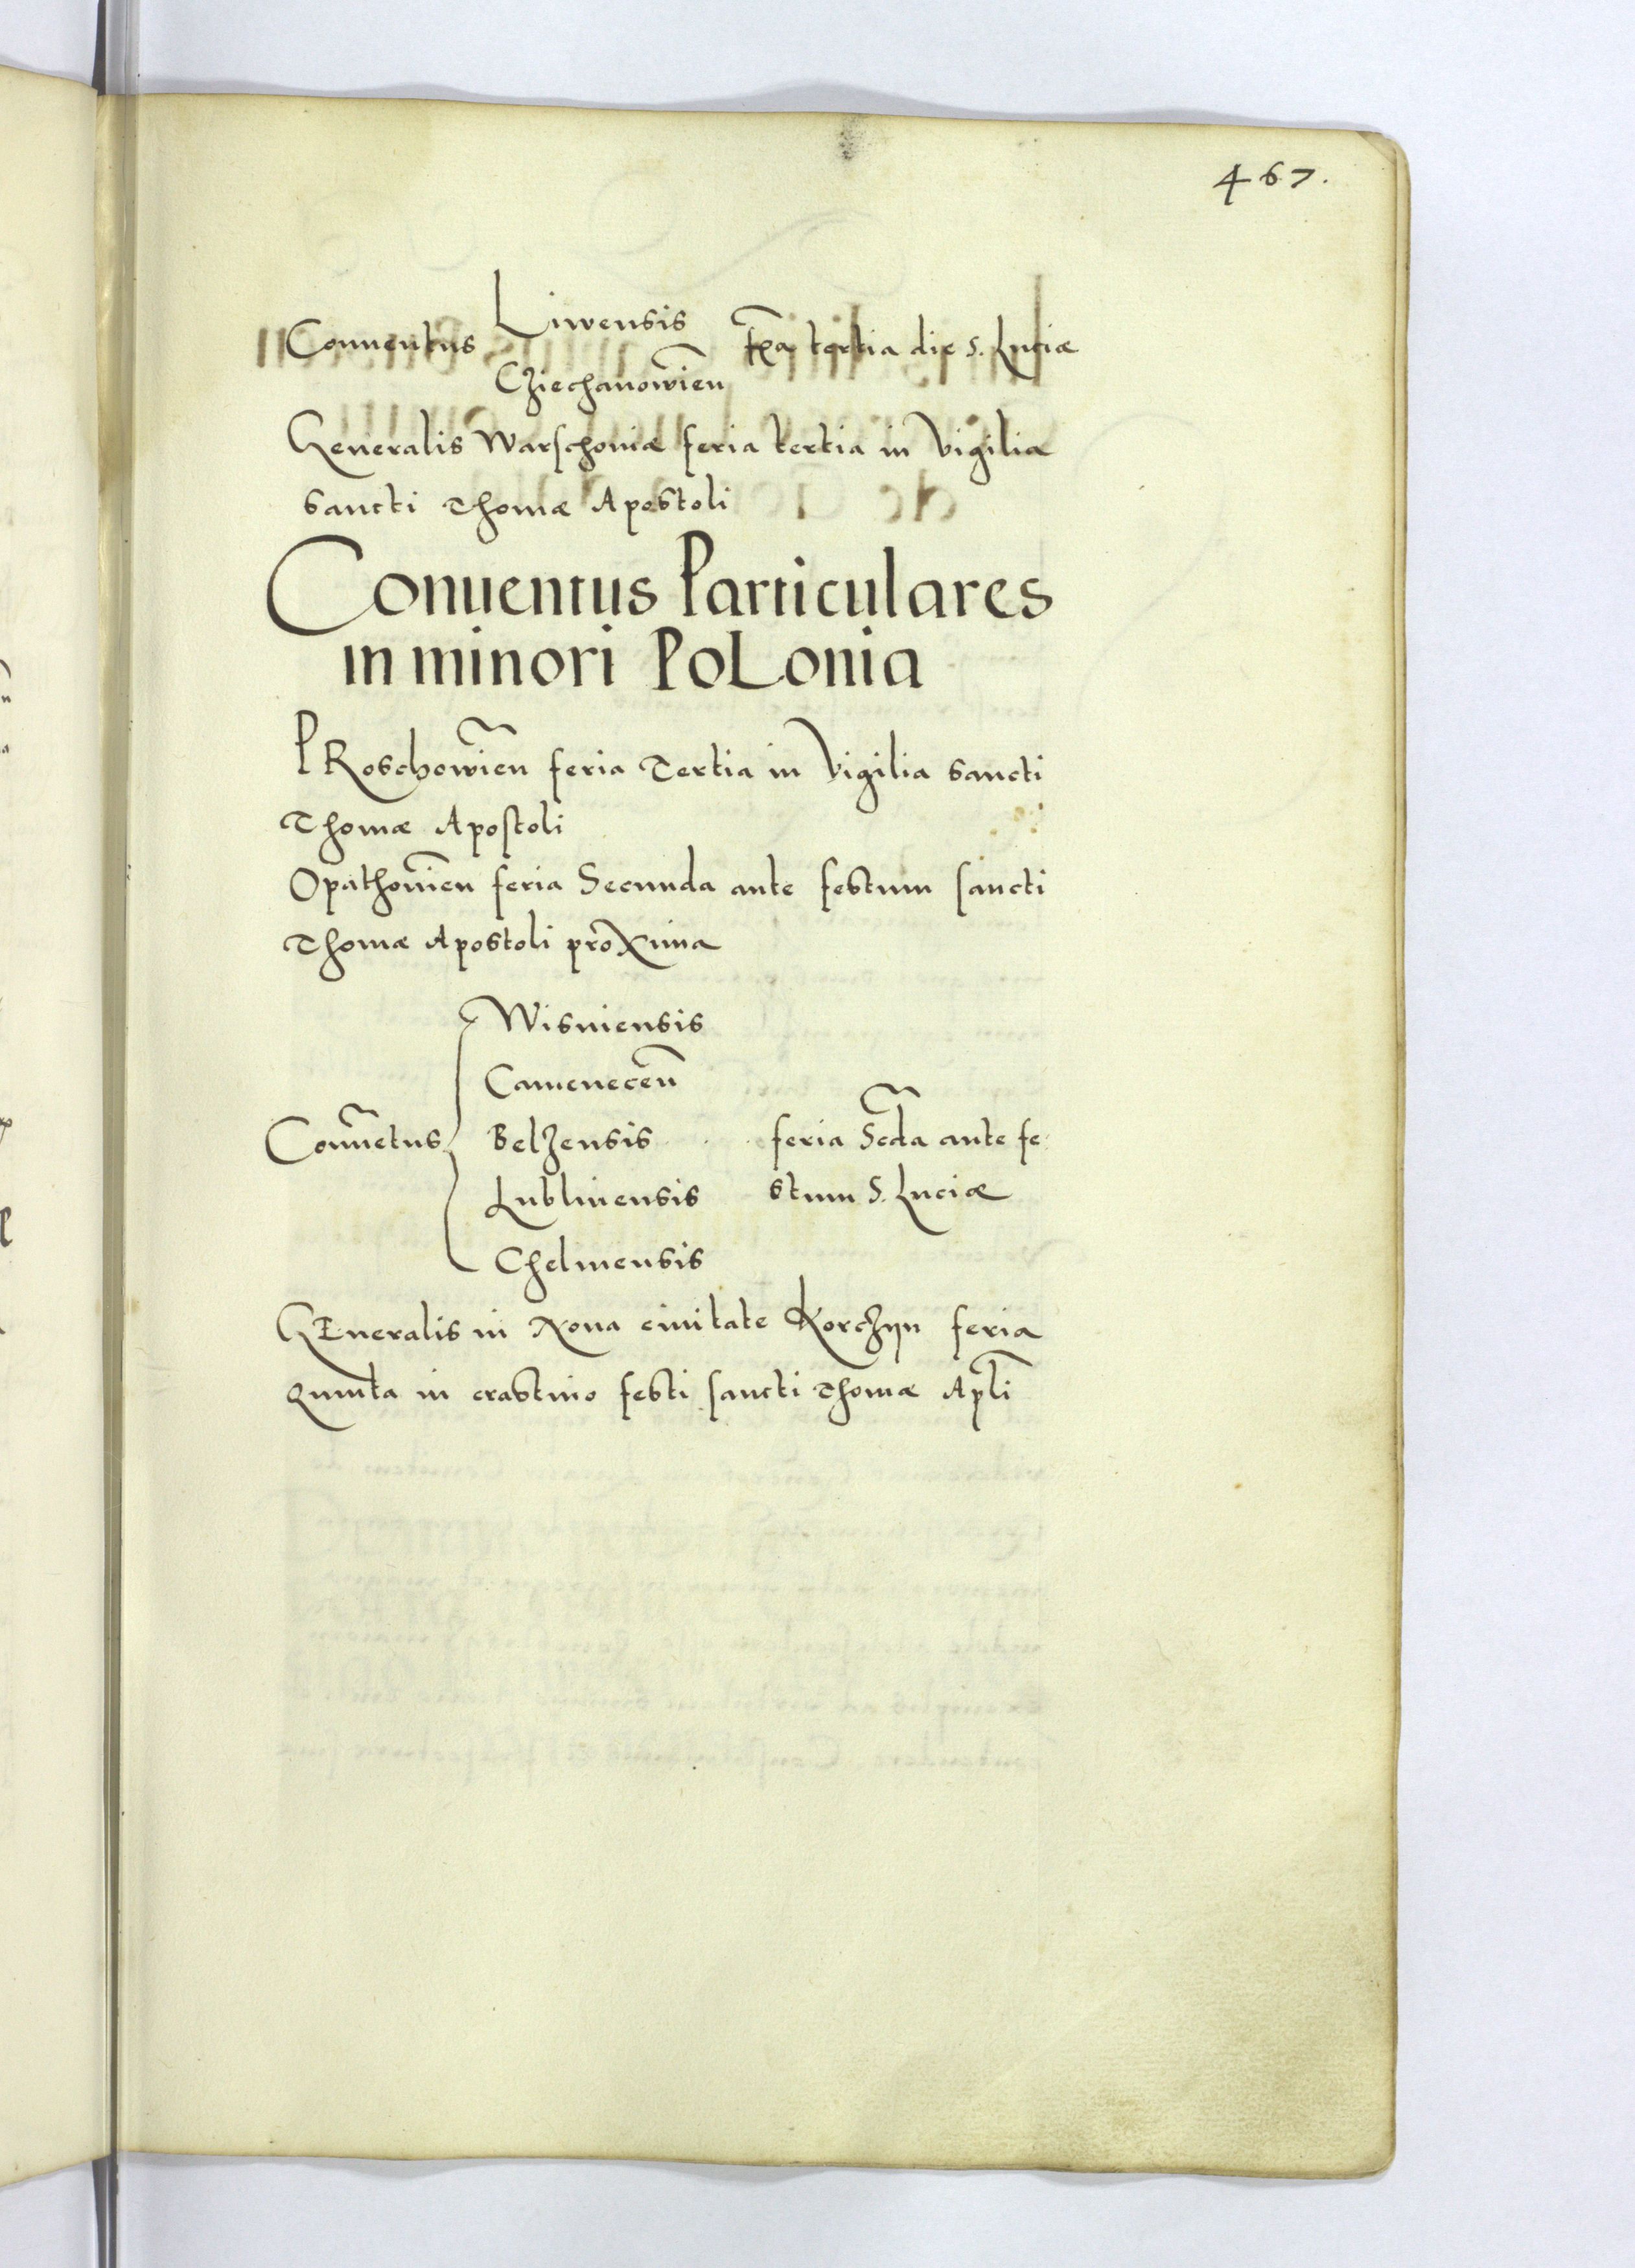 467.
Liwensis
Conuentus fr̃a tertia die s. Luciæ
Cziechanowien̄
Generalis Warschouiæ feria tertia in Vigilia
sancti Thomæ Apostoli
Conuentus Particulares
in minori PoLonia
PRoschowien̄ feria Tertia in Vigilia sancti
Thomæ Apostoli
Opathouien̄ feria Secunda ante festum sancti
Thomæ Apostoli proxima
Wisniensis
Camenecen̄
Conuẽtus Belzensis feria Scd̃a ante fe
Lublinensis stum S. Luciæ
Chelmensis
GEneralis in Noua ciuitate Korczyn feria
quinta in crastino festi sancti Thomæ Apl̃i